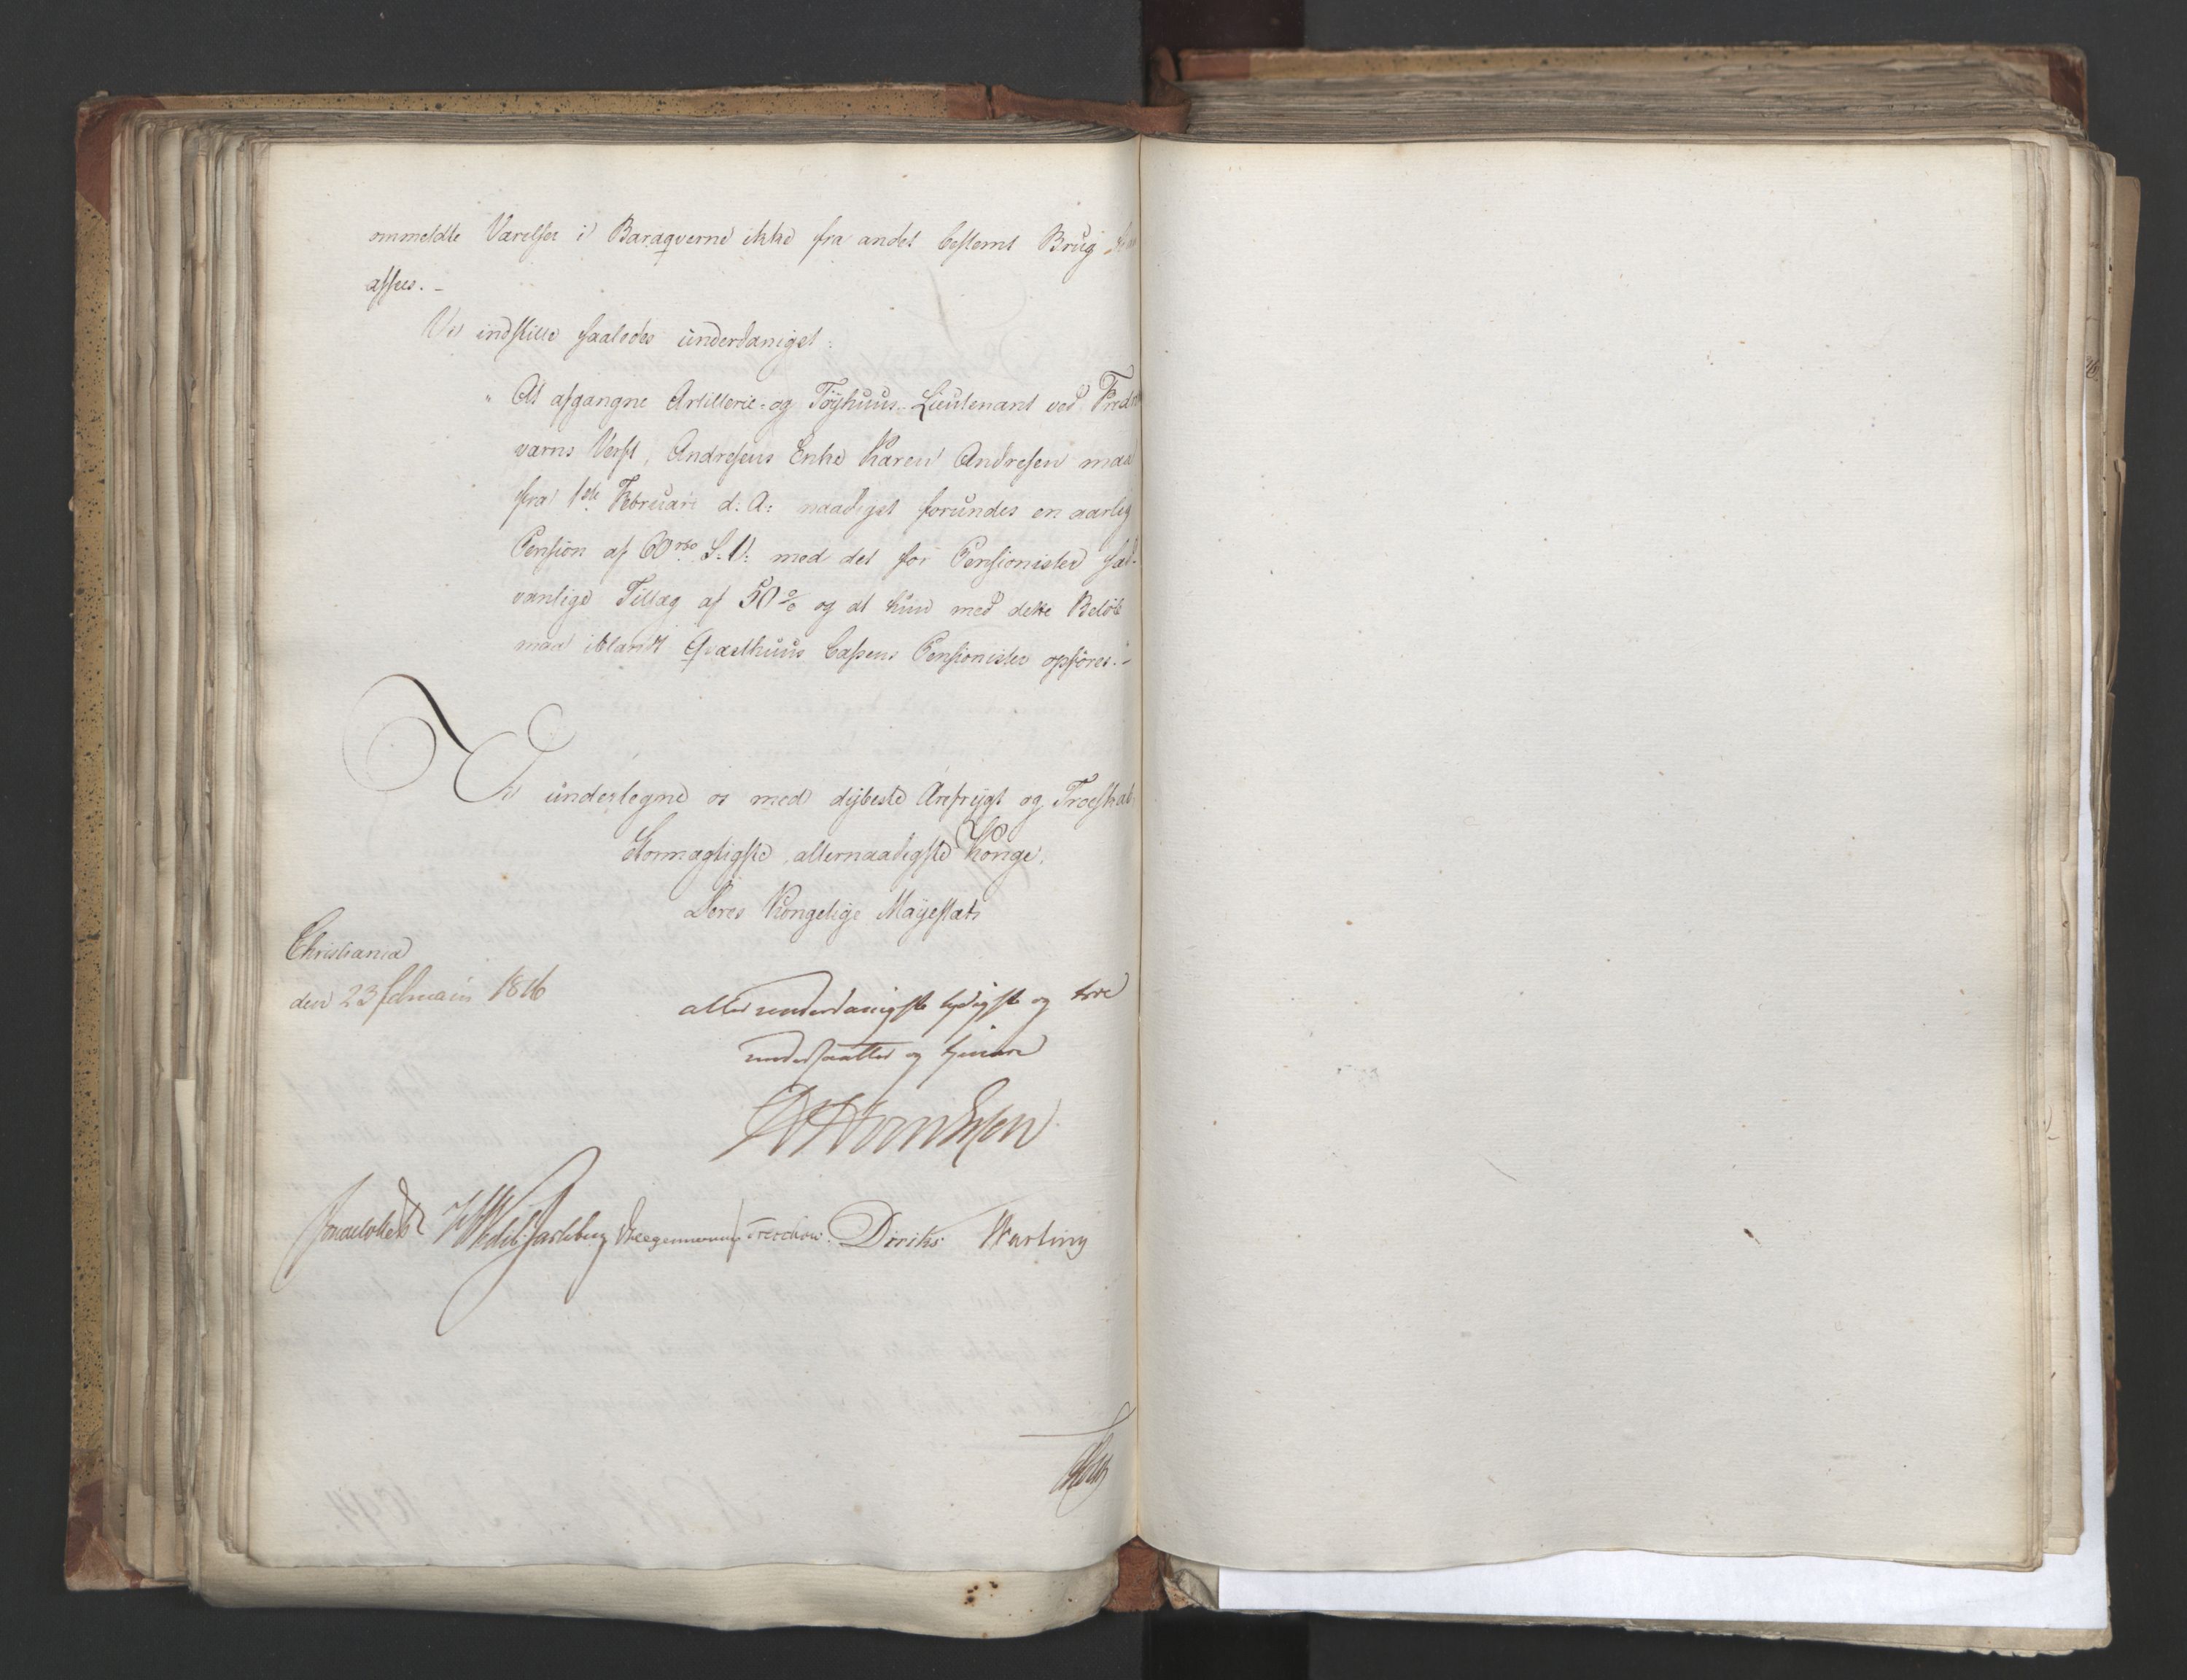 ommeldte Værelser i Baraqverne ikke fra andet bestemt Brug
afsees. -
Vi indstille saaledes underdanigst:
" At afgangne Artillerie- og Töyhuus-Lieutenant ved Fred
værns Verft, Andresens Enke Karen Andresen maa
fra 1ste Februari d: A: naadigst forundes en aarlig
Pension af 60 rbd S:V: med det for Pensionister sæd-
vanlige Tillæg af 50 % og at hun med dette Beløb
maa iblandt Qvæsthuus Cassens Pensionister opföres. -
Vi underlegne os med dybeste Ærefrygt og Troeskab
Stormægtigste, allernaadigste Konge,
Deres Kongelige Mayestæts
Christiania
den 23 februarii 1816
allerunderdanigste lydigste og troe
undersaatter og tjenere
Wedel-Jarlsberg Hegermann Treschow. Diriks